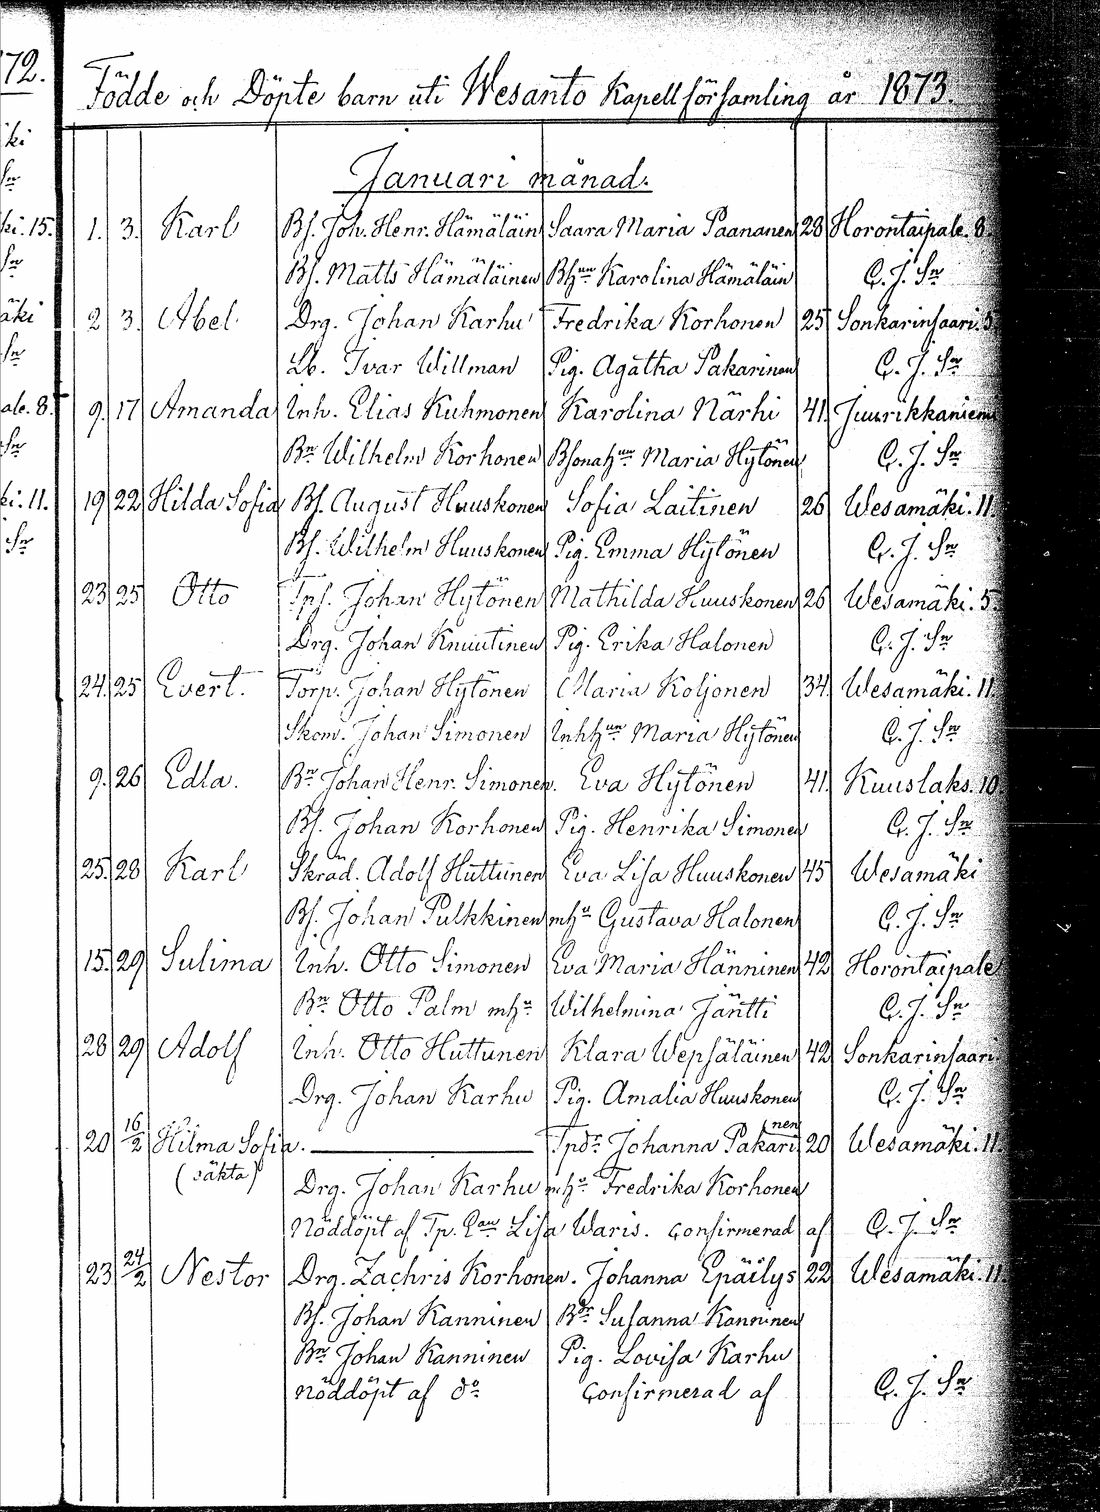 72.
Födde och Döpte barn uti Wesanto Kapellförsamling år 1873.
iki
Sn
Januari månad.
ki. 15.
1. 3. Karl Bs. Joh. Henr. Hämäläin Saara Maria Paananen 28 Horontaipale. 8.
Sn
Bs. Matts Hämäläinen Bhun Karolina Hämäläin C. J. Sn
äki
2 3. Abel Drg. Johan Karhu Fredrika Korhonen 25 Sonkarinsaari. 5.
Sn
Lb. Ivar Willman Pig. Agatha Pakarinen C. J. Sn
ale. 8.
9. 17 Amanda Inh. Elias Kuhmonen Karolina Närhi 41. Juurikkaniemi
Sn
Bn Wilhelm Korhonen Bsonahun Maria Hytönen C. J. Sn
ki. 11.
19 22 Hilda Sofia Bs. August Huuskonen Sofia Laitinen 26 Wesamäki. 11.
Sn
Bs. Wilhelm Huuskonen Pig. Emma Hytönen C. J. Sn
23 25 Otto Tps. Johan Hytönen Mathilda Huuskonen 26 Wesamäki. 5.
Drg. Johan Knuutinen Pig. Erika Halonen C. J. Sn
24. 25 Evert. Torp. Johan Hytönen Maria Koljonen 34. Wesamäki. 11.
Skom. Johan Simonen Inhhun Maria Hytönen C. J. Sn
9. 26 Edla. Bn Johan Henr. Simonen. Eva Hytönen 41. Kuuslaks. 10
Bs. Johan Korhonen Pig. Henrika Simonen C. J. Sn
25. 28 Karl Skräd. Adolf Huttunen Eva Lisa Huuskonen 45 Wesamäki
Bs. Johan Pulkkinen mhu Gustava Halonen C. J. Sn
15. 29 Sulima Inh. Otto Simonen Eva Maria Hänninen 42 Horontaipale
Bn Otto Palm mhu Wilhelmina Jäntti C. J. Sn
28 29 Adolf Inh. Otto Huttunen Klara Wepsäläinen 42 Sonkarinsaari
Drg. Johan Karhu Pig. Amalia Huuskonen C. J. Sn
20 16/2 Hilma Sofia. Tpdr Johanna Pakarinen 20 Wesamäki. 11.
(oäkta) Drg. Johan Karhu mhu Fredrika Korhonen
Nöddöpt af Tp. Lisa Waris. Confirmerad af C. J. Sn
23 24/2 Nestor Drg. Zachris Korhonen. Johanna Epäilys 22 Wesamäki. 11.
Bs. Johan Kanninen Bdr Susanna Kanninen
Bn Johan Kanninen Pig. Lovisa Karhu
Nöddöpt af do Confirmerad af C. J. Sn